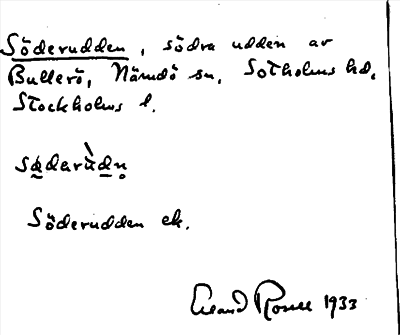 Söderudden, södra udden av
Bullerö, Nämdö sn, Sotholms hd,
Stockholms l.
södarùdn̥
Söderudden ek.
Erland Rosell 1933